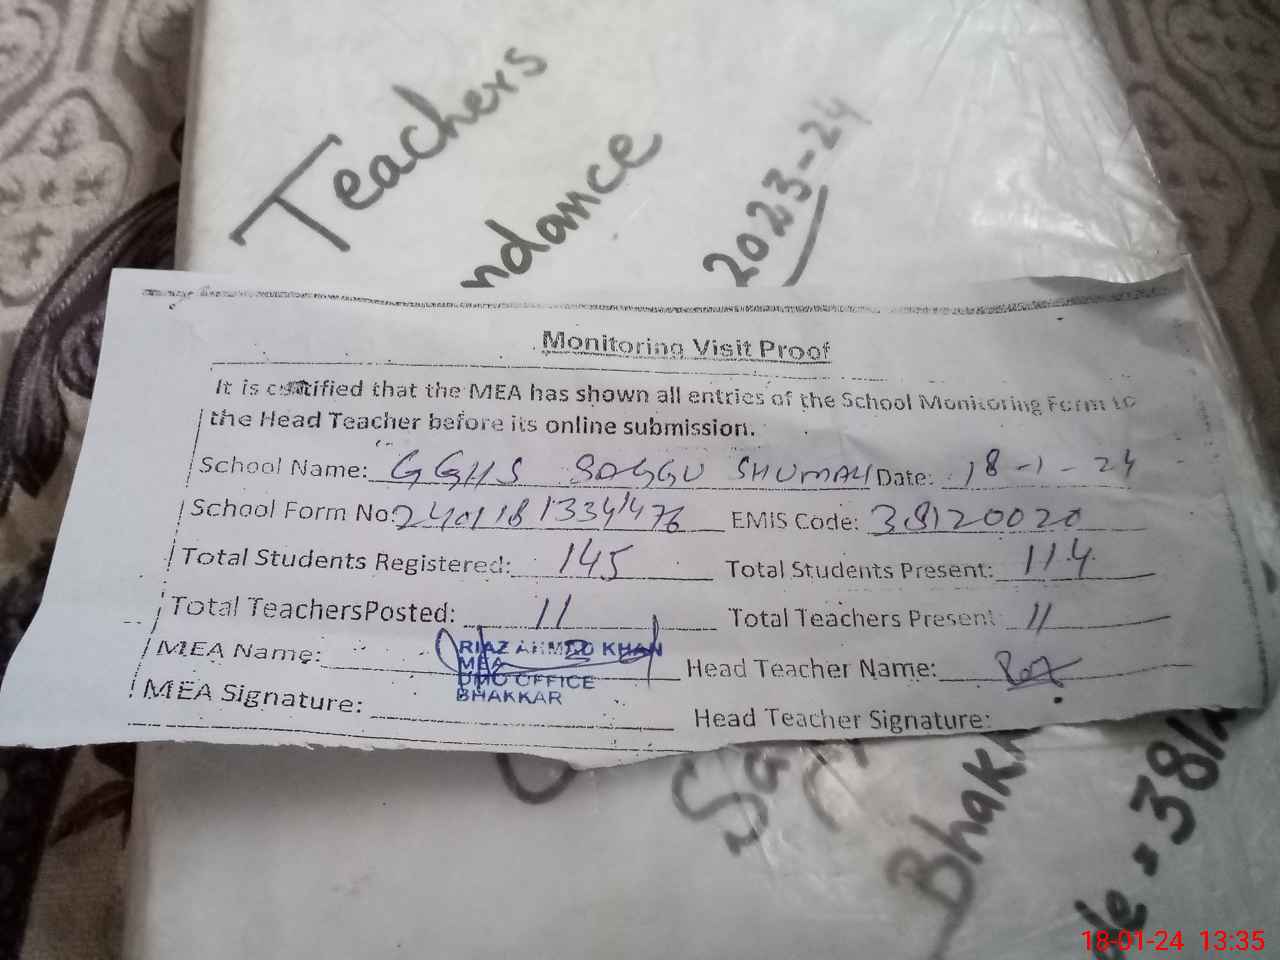 Teachers
ndance
2023-24
Monitoring Visit Proof
It is certified that the MEA has shown all entries of the School Monitoring Form to
the Head Teacher before its online submission.
School Name: GGHS SAGGU SHUMALI Date: 18-1-24
School Form No: EMIS Code: 38120020
Total Students Registered: 145 Total Students Present: 114
Total TeachersPosted: 11 Total Teachers Present: 11
MEA Name: RIAZ AHMED KHAN Head Teacher Name:
MEA
DMO OFFICE
BHAKKAR
MEA Signature: Head Teacher Signature:
Bhakk
de = 381
18-01-24 13:35